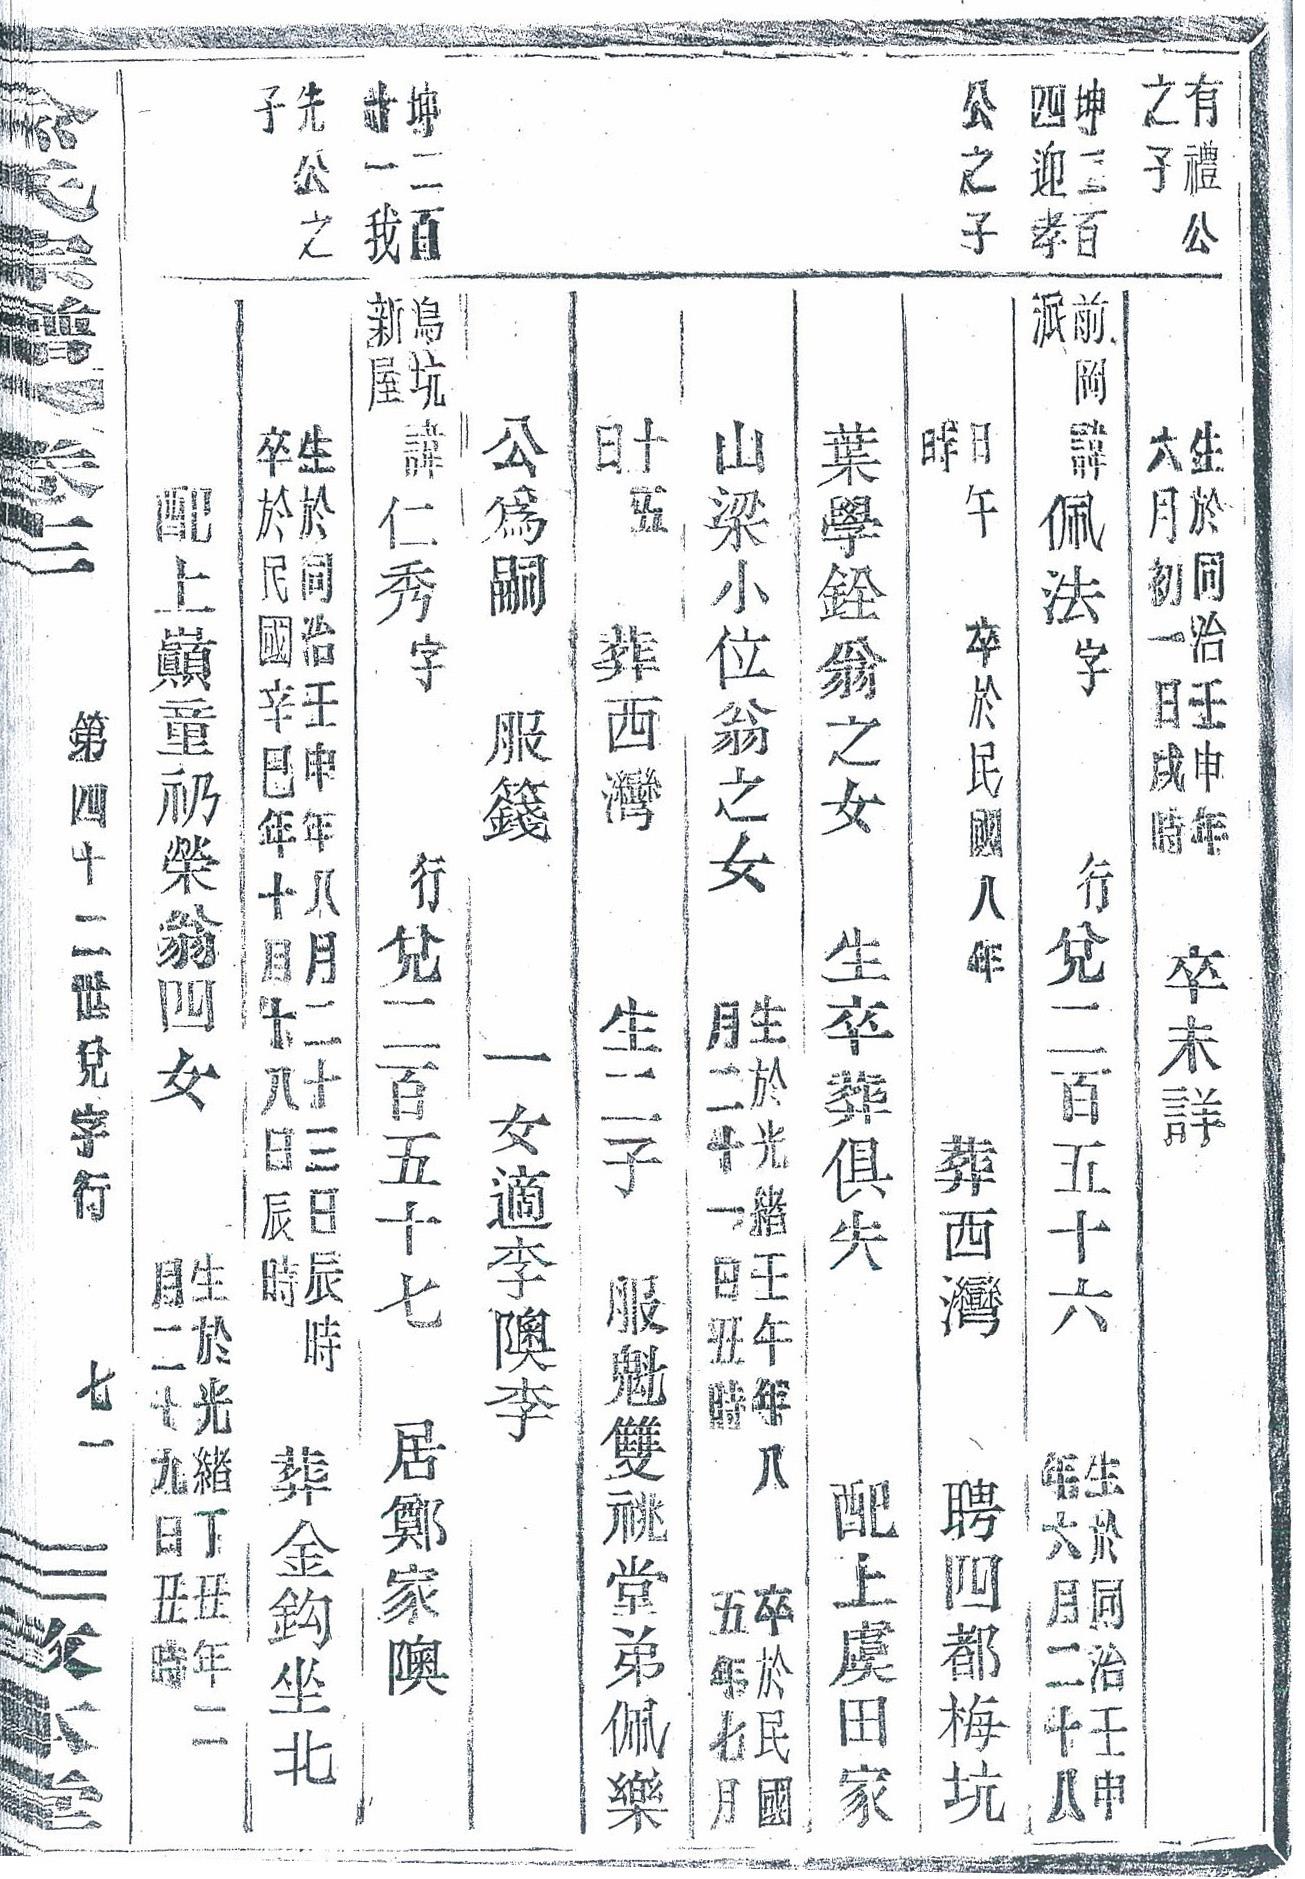 有禮公
之子
生於同治壬申年
六月初一日戌時
卒未詳
坤二百
四迎孝
前岡
派
諱佩法字 行兌二百五十六
生於同治壬申
年六月二十八
公之子
日午
時
卒於民國八年 葬西灣 聘四都梅坑
葉學銓翁之女 生卒葬俱失 配上虞田家
山梁小位翁之女
生於光緒壬午年八
月二十一日丑時
卒於民國
五年七月
十五
日
葬西灣 生二子 服魁雙祧堂弟佩樂
公爲嗣 服籛 一女適李隩李
坤二百
廿一我
烏坑
新屋
諱仁秀字 行兌二百五十七 居鄭家隩
先公之
子
生於同治壬申年八月二十三日辰時
卒於民國辛巳年十日十八日辰時
葬金鈎坐北
配上巔童礽榮翁四女
生於光緒丁丑年二
月二十九日丑時
氏宗譜 卷二 第四十二世兌字行 七一 本堂